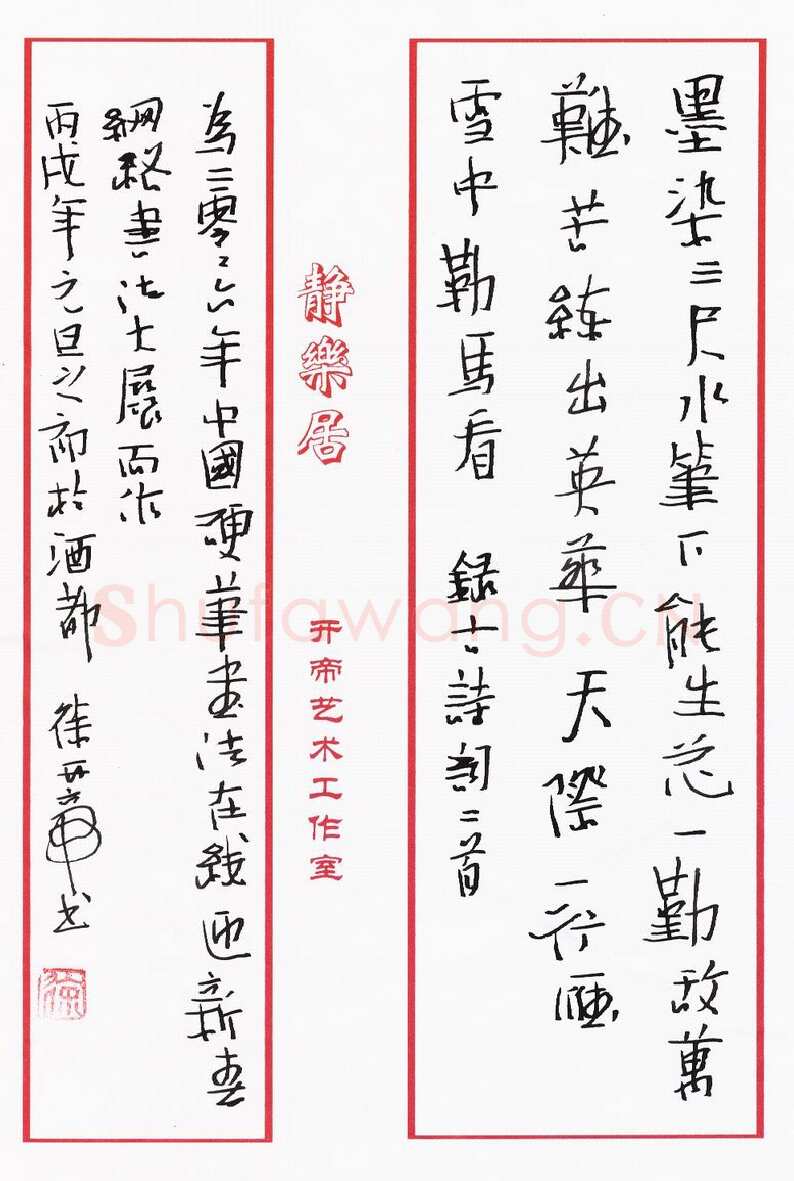 墨染三尺水筆下能生花一勤敌萬
難苦練出英華天際一行雁
雪中勒馬看 錄古詩詞二首
静樂居
开帝艺术工作室
為二零々六年中國硬筆書法在綫迎新春
網絡書法大展而作
丙戌年元旦之節於酒都 徐开帝书
Shufawang.CN